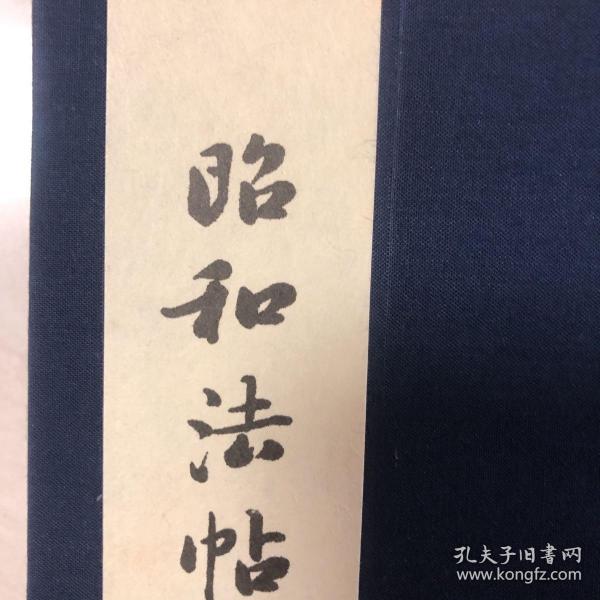 昭和法帖
孔夫子旧書网
www.kongfz.com